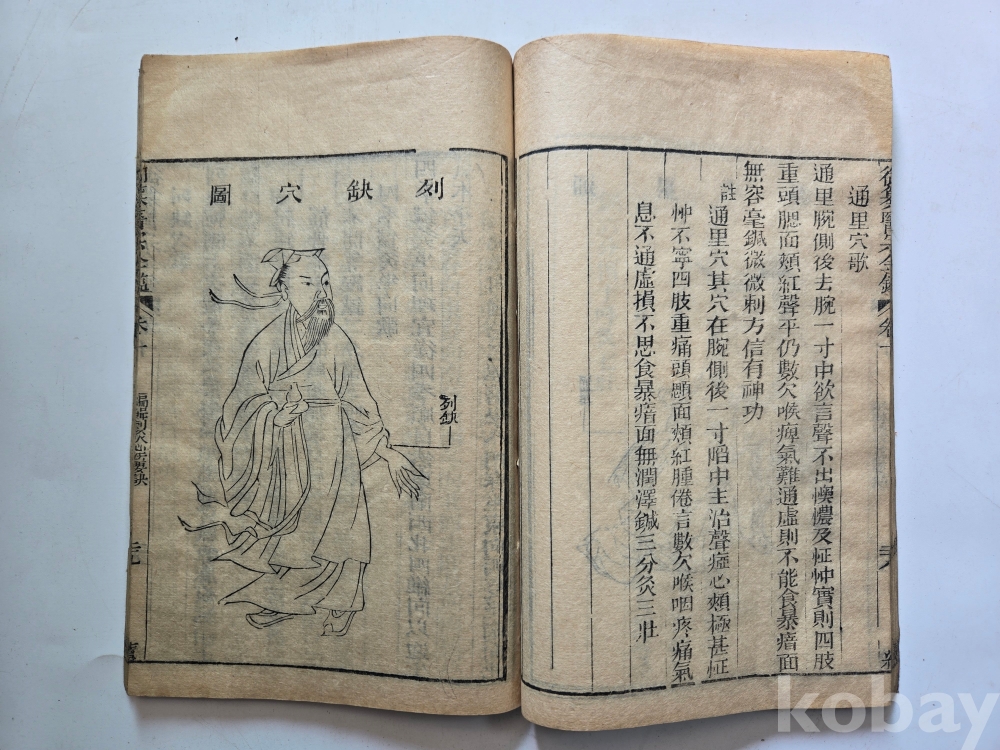 通里穴歌
通里腕側後去腕一寸中欲言聲不出懊憹及怔忡實則四肢
重頭腮面頰紅聲平仍數欠喉痺氣難通虛則不能食暴瘖面
無容毫鍼微微刺方信有神功
註
通里穴其穴在腕側後一寸陷中主治聲瘂心頰極甚怔
忡不寧四肢重痛頭顋面頰紅腫倦言數欠喉咽疼痛氣
息不通虛損不思食暴瘖面無潤澤鍼三分灸三壯
列缺穴圖
列缺
kobay